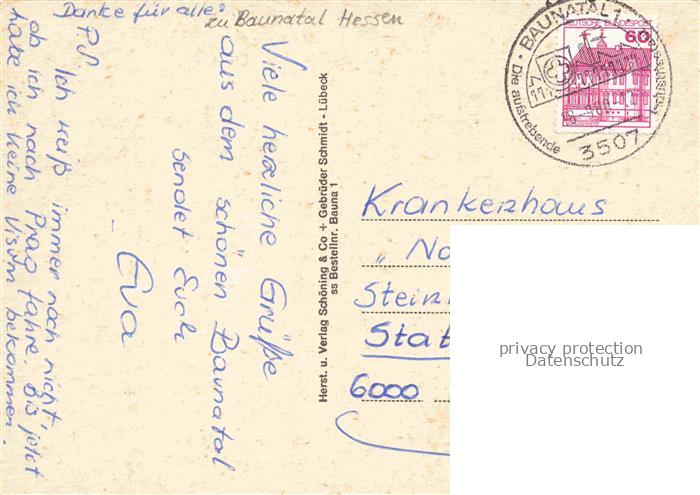 Danke für alles
zu Baunatal Hessen
Viele herzliche Grüße
aus dem schönen Baunatal
sendet Euch
Eva
PS
Ich weiß immer noch nicht,
ob ich nach Prag fahre. Bis jetzt
habe ich keine Visum bekommen.
Herst. u. Verlag Schöning & Co + Gebrüder Schmidt - Lübeck
ss Bestellnr. Bauna 1
BAUNATAL 1
Die aufstrebende
3507
DEUTSCHE BUNDESPOST
60
Krankenhaus
„No
Stein
Stat
6000
privacy protection
Datenschutz